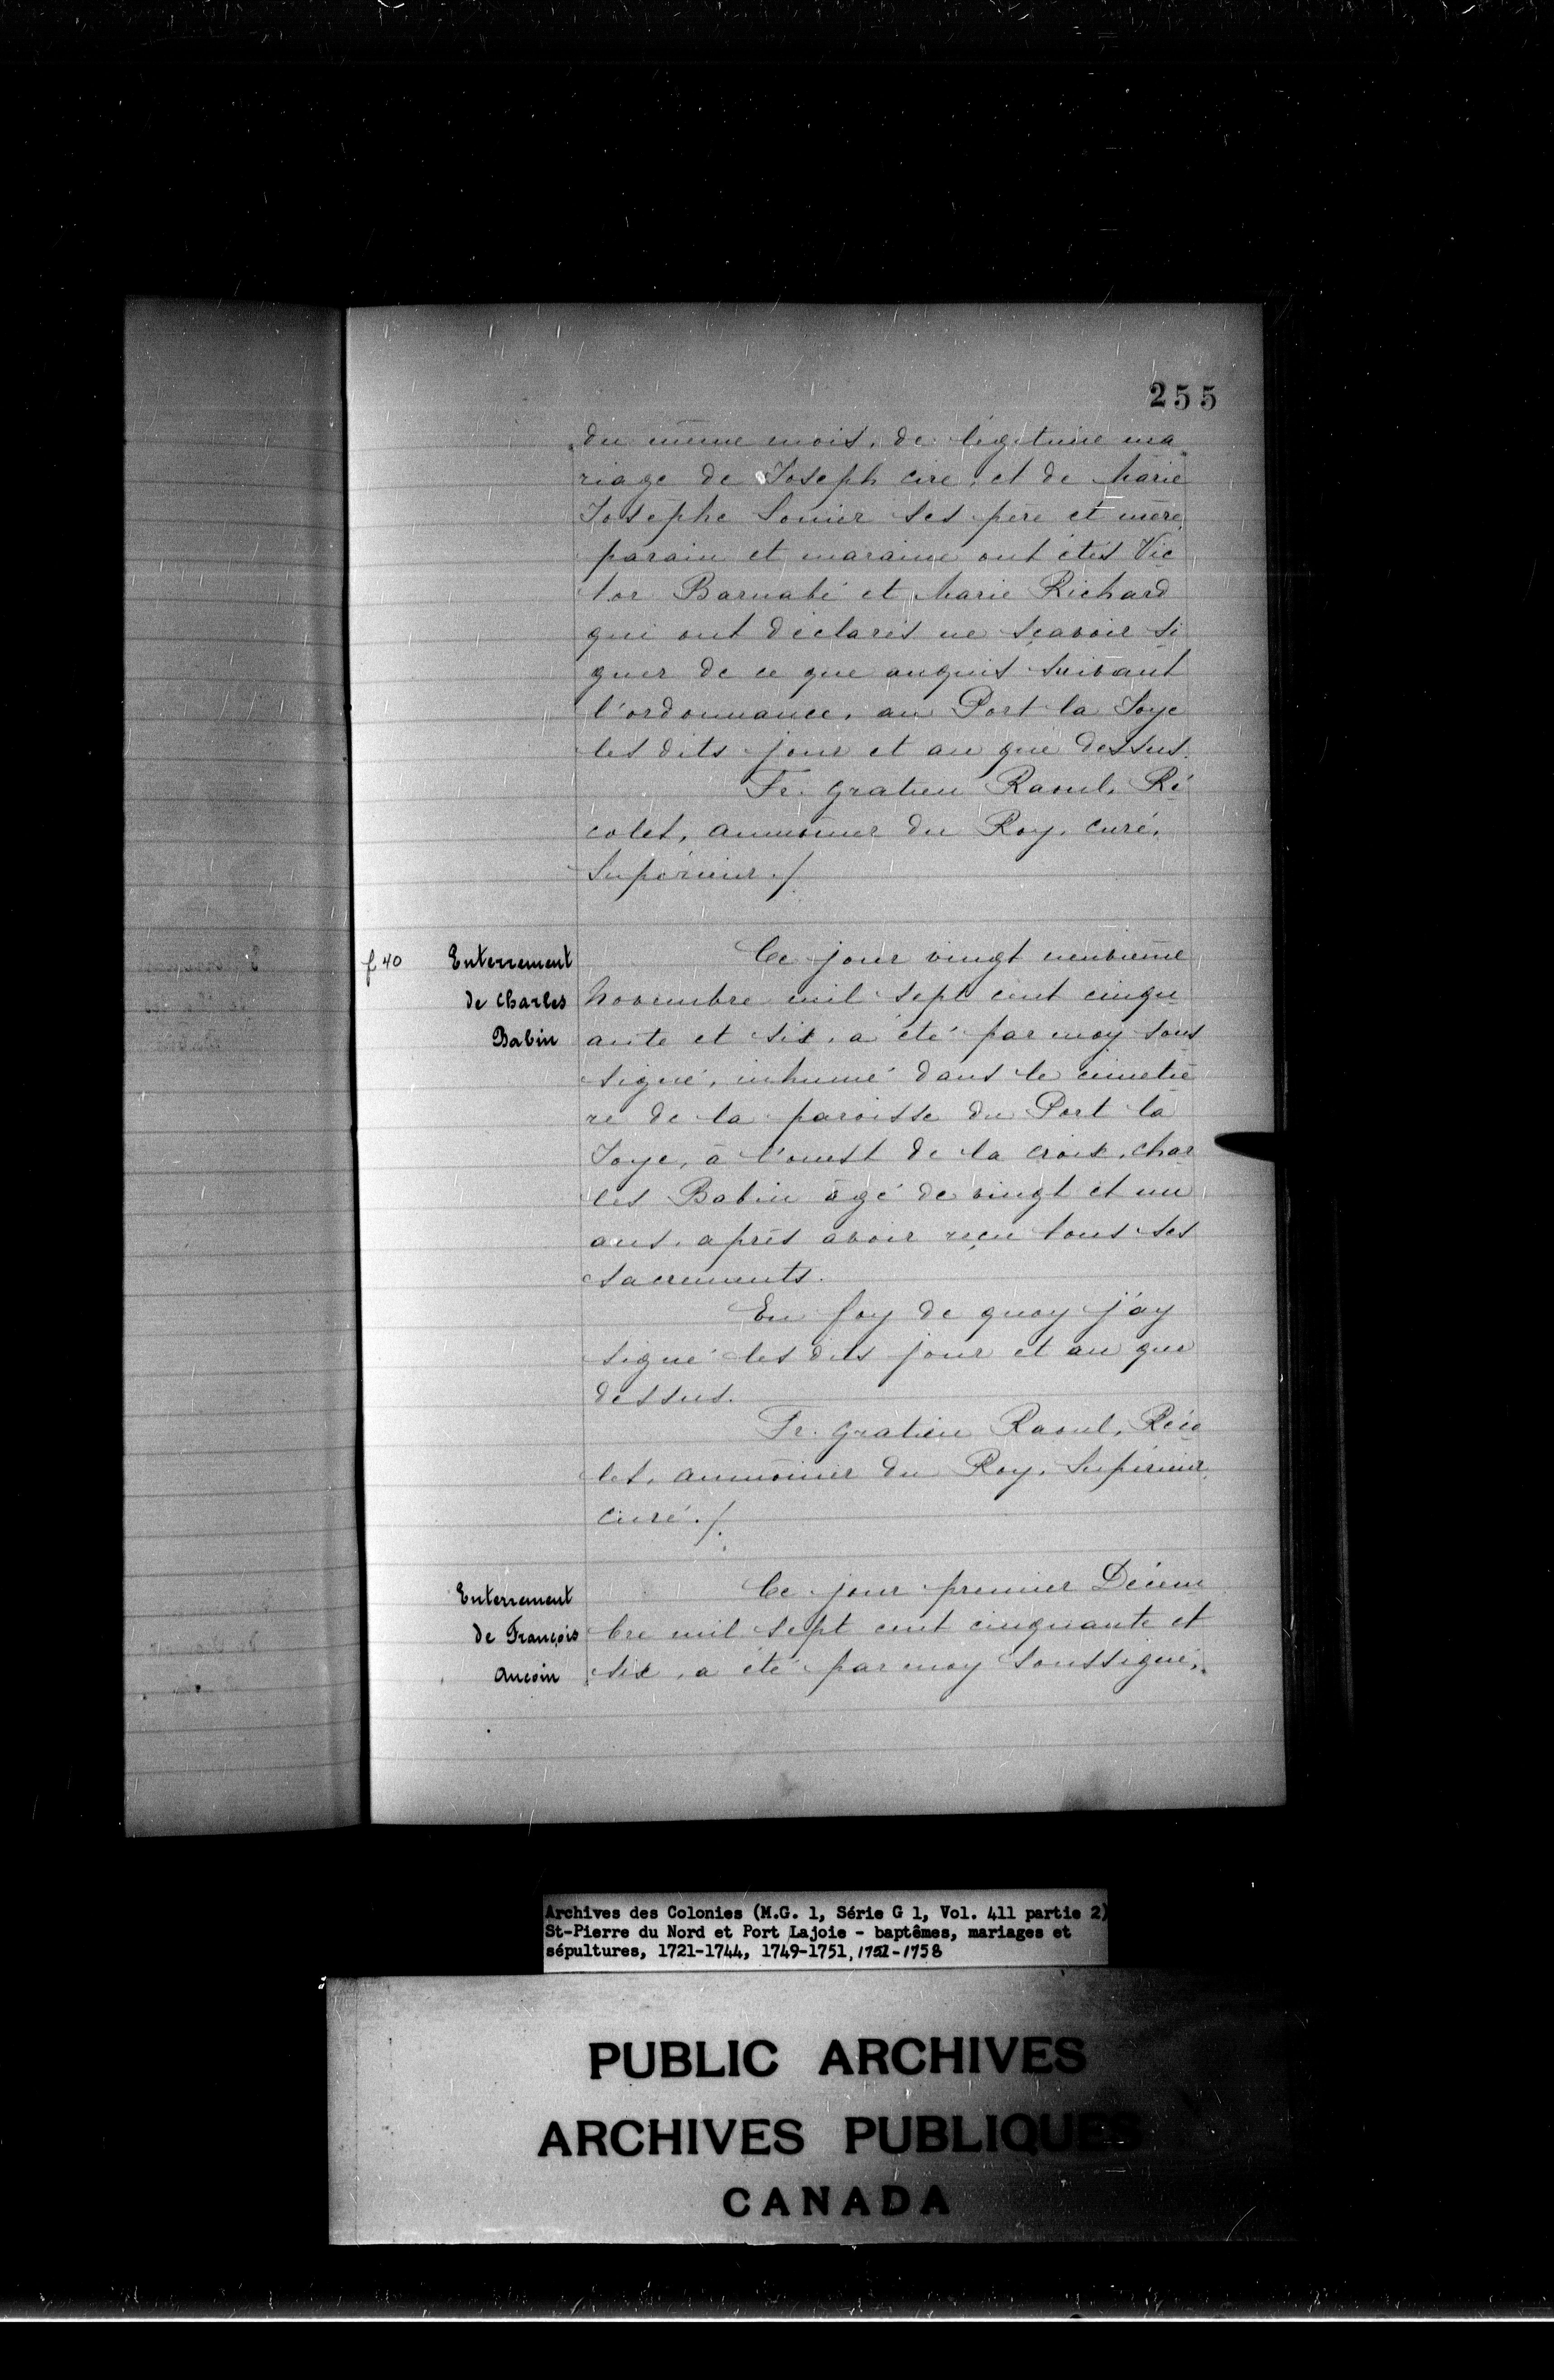 255
du même mois, de légitime ma
riage de Joseph cire, et de Marie
Josephe Sonier ses père et mère,
parain et maraine ont étés Vic
tor Barnabé et Marie Richard
qui ont déclarés ne sçavoir si
gner de ce que anquis suivant
l'ordonnance, au Port la Joye
les dits jour et an que dessus.
Fr. gratien Raoul, Ré
colet, aumônier du Roy, curé,
Supérieur ./.
f 40
Enterrement
de Charles
Babin
Ce jour vingt neuvième
Novembre mil sept cent cinqu
ante et six, a été par moy sous
signé, inhumé dans le cimetiè
re de la paroisse du Port la
Joye, à l'ouest de la croix, char
les Babin âgé de vingt et un
ans, après avoir reçu tous ses
sacrements.
En foy de quoy j'ay
signé les dits jour et an que
dessus.
Fr. gratien Raoul, Réco
let, aumônier du Roy, Supérieur,
curé ./.
Enterrement
de François
Aucoin
Ce jour premier Décem
bre mil sept cent cinquante et
six, a été par moy soussigné,
Archives des Colonies (M.G. 1, Série G 1, Vol. 411 partie 2)
St-Pierre du Nord et Port Lajoie - baptêmes, mariages et
sépultures, 1721-1744, 1749-1751, 1751-1758
PUBLIC ARCHIVES
ARCHIVES PUBLIQUES
CANADA